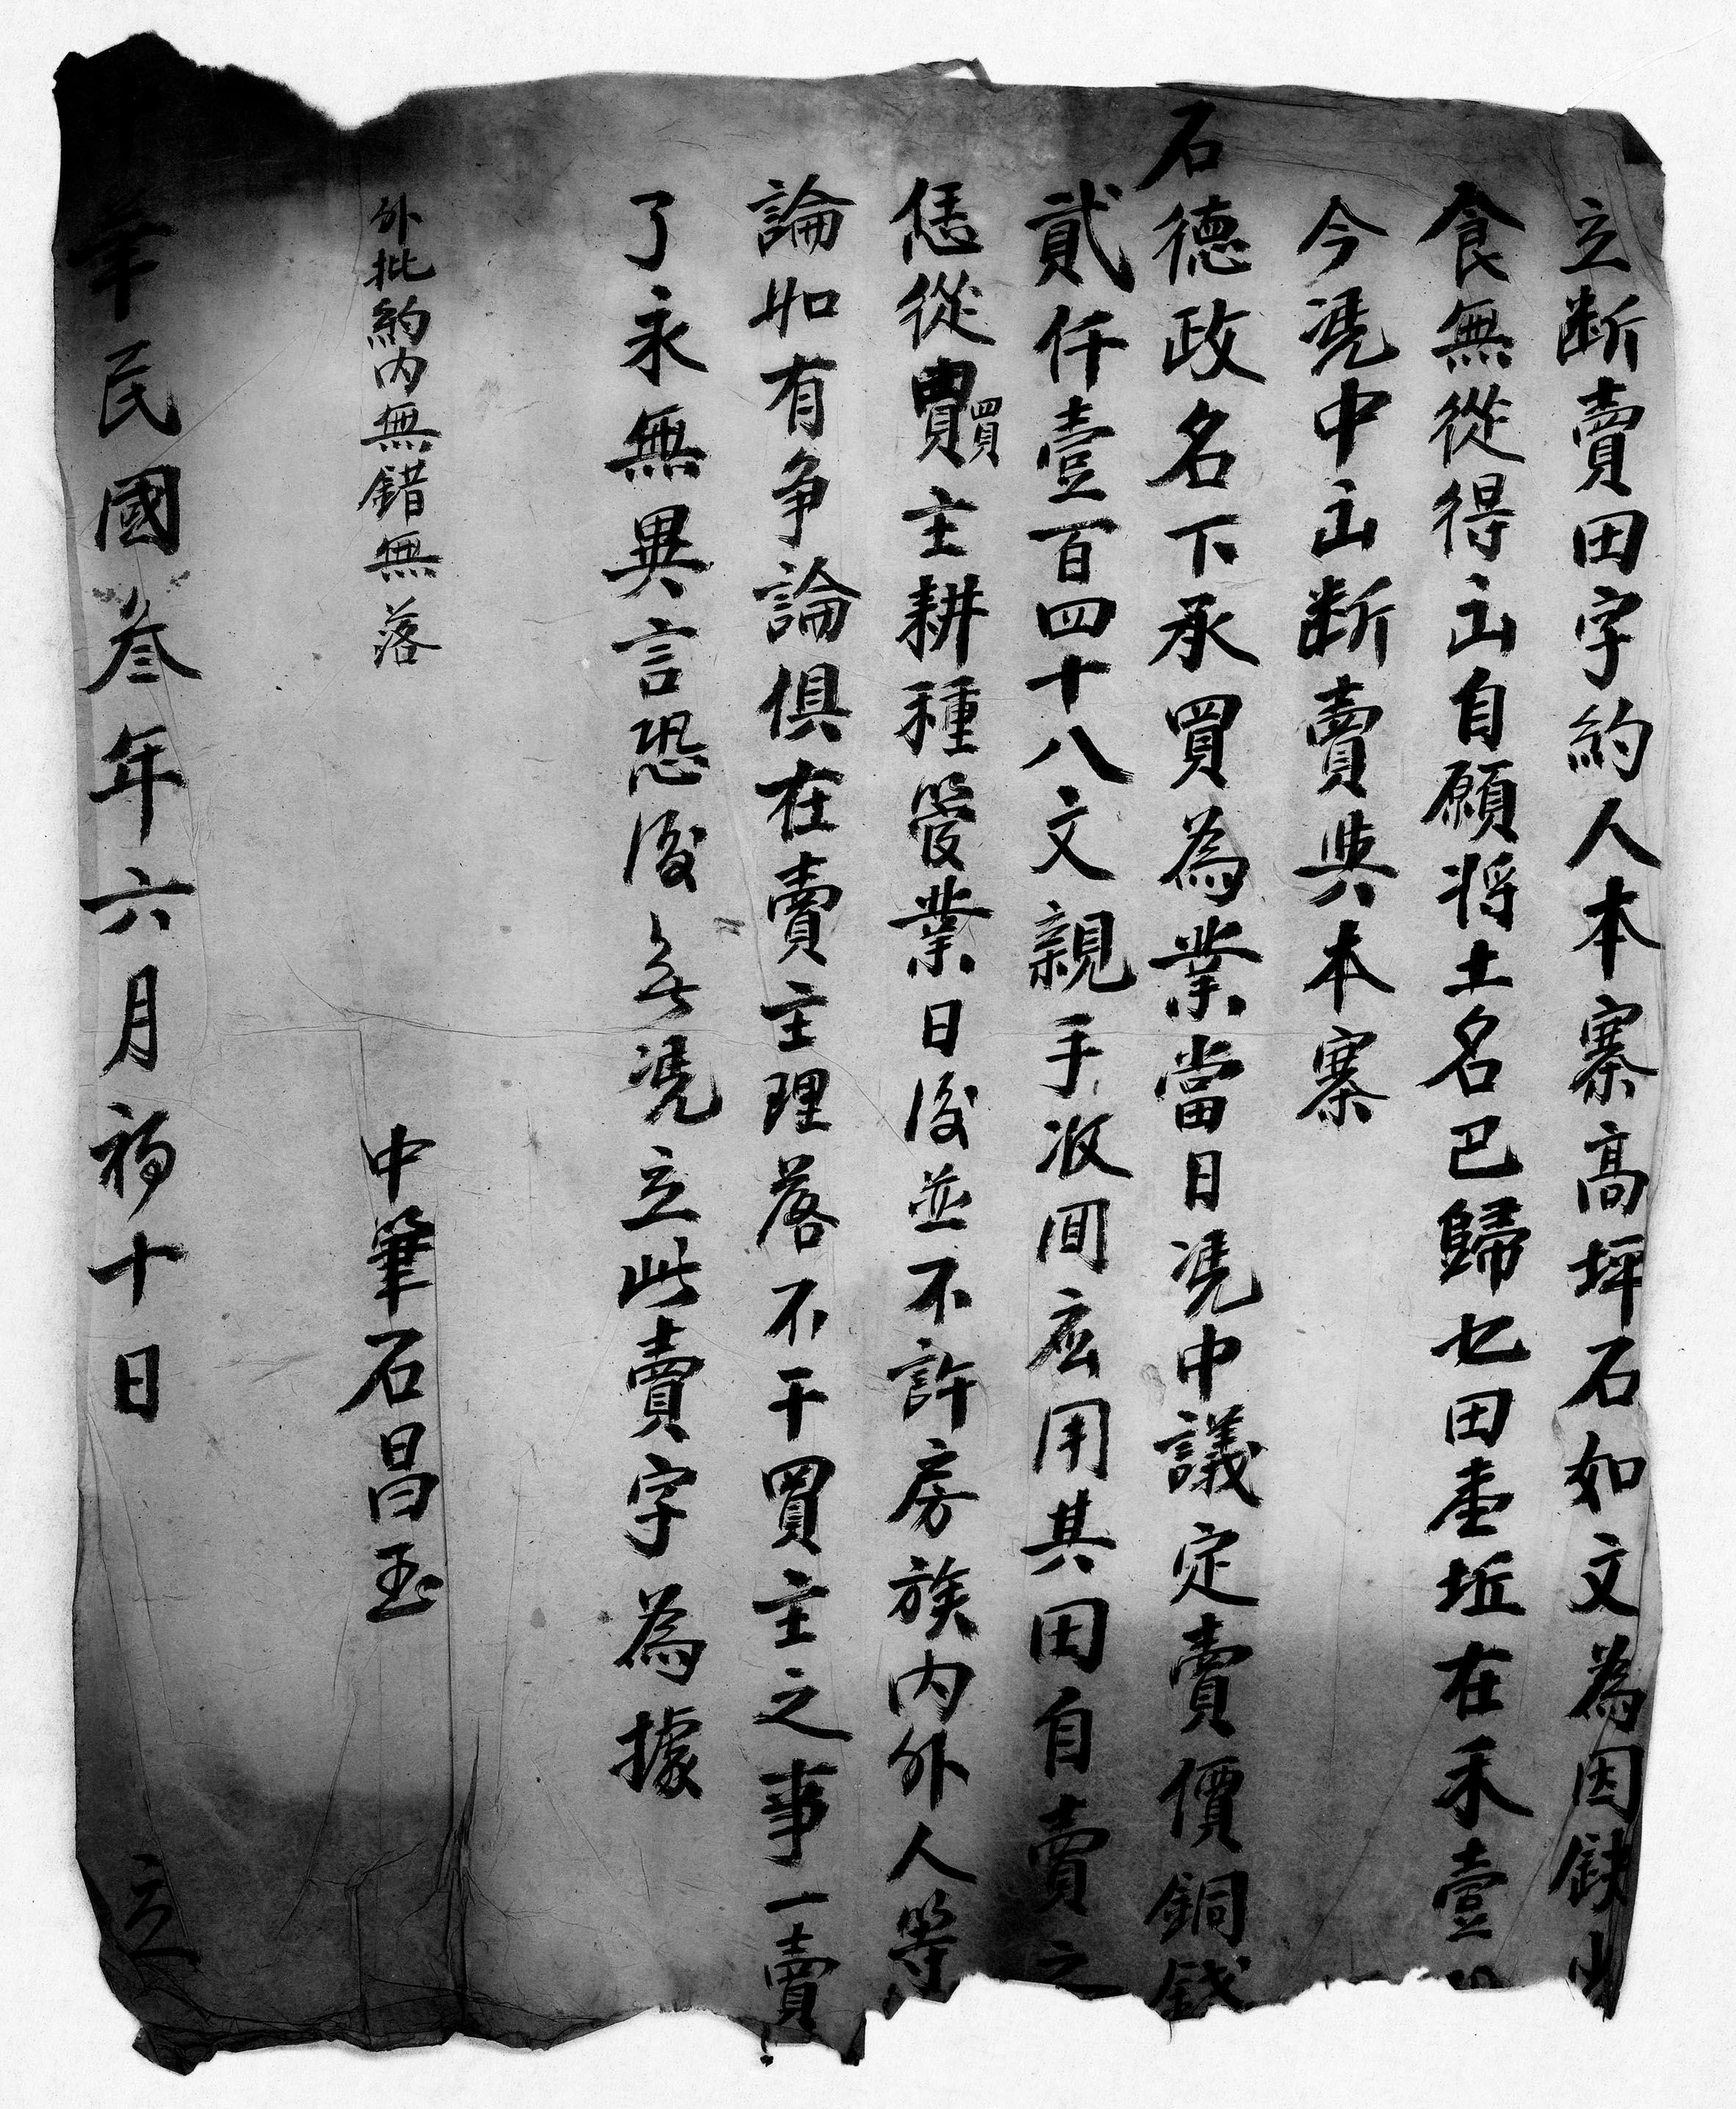 立断賣田字約人本寨高坪石如文為因缺少
食無從得出自願將土名巴歸乜田壹坵在禾壹
今凴中出断賣與本寨
石德政名下承買為業當日凴中議定賣價銅錢
貳仟壹百四十八文親手收囬應用其田自賣之
恁從買主耕種管業日後並不許房族內外人等
論如有争論俱在賣主理落不干買主之事一賣
了永無異言恐後無凴立此賣字為據
外批約內無錯無落
中筆石昌玉
華民國叁年六月初十日 立